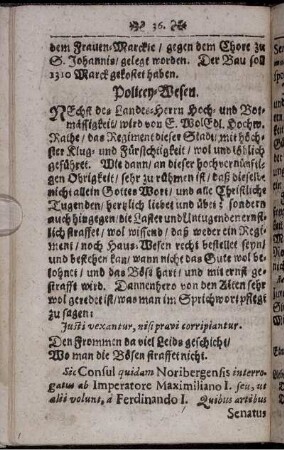 36.
dem Frauen-Marckte / gegen dem Chore zu
S. Johannis / gelegt worden. Der Bau soll
1310 Marck gekostet haben.
Policey-Wesen.
NEchst des Landes-Herrn Hoch- und Bot-
mässigkeit / wird von E. WolEdl. Hochw.
Rathe / das Regiment dieser Stadt / mit höch-
ster Klug- und Fürsichtigkeit / wol und löblich
geführet. Wie dann / an dieser hochvernünfti-
gen Obrigkeit / sehr zu rühmen ist / daß dieselbe
nicht allein Gottes Wort / und alle Christliche
Tugenden / hertzlich liebet und übet / sondern
auch hingegen / die Laster und Untugenden ernst-
lich straffet / wol wissend / daß weder ein Regi-
ment / noch Haus-Wesen recht bestellet seyn /
und bestehen kan / wann nicht das Gute wol be-
lohnet / und das Böse hart / und mit ernst ge-
strafft wird. Dannenhero von den Alten sehr
wol geredet ist / was man im Sprichwort pfleget
zu sagen:
Justi vexantur, nisi pravi corripiantur.
Den Frommen da viel Leids geschicht /
Wo man die Bösen straffet nicht.
Sic Consul quidam Noribergensis interro-
gatus ab Imperatore Maximiliano I. seu, ut
alii volunt, á Ferdinando I. Quibus artibus
Senatus